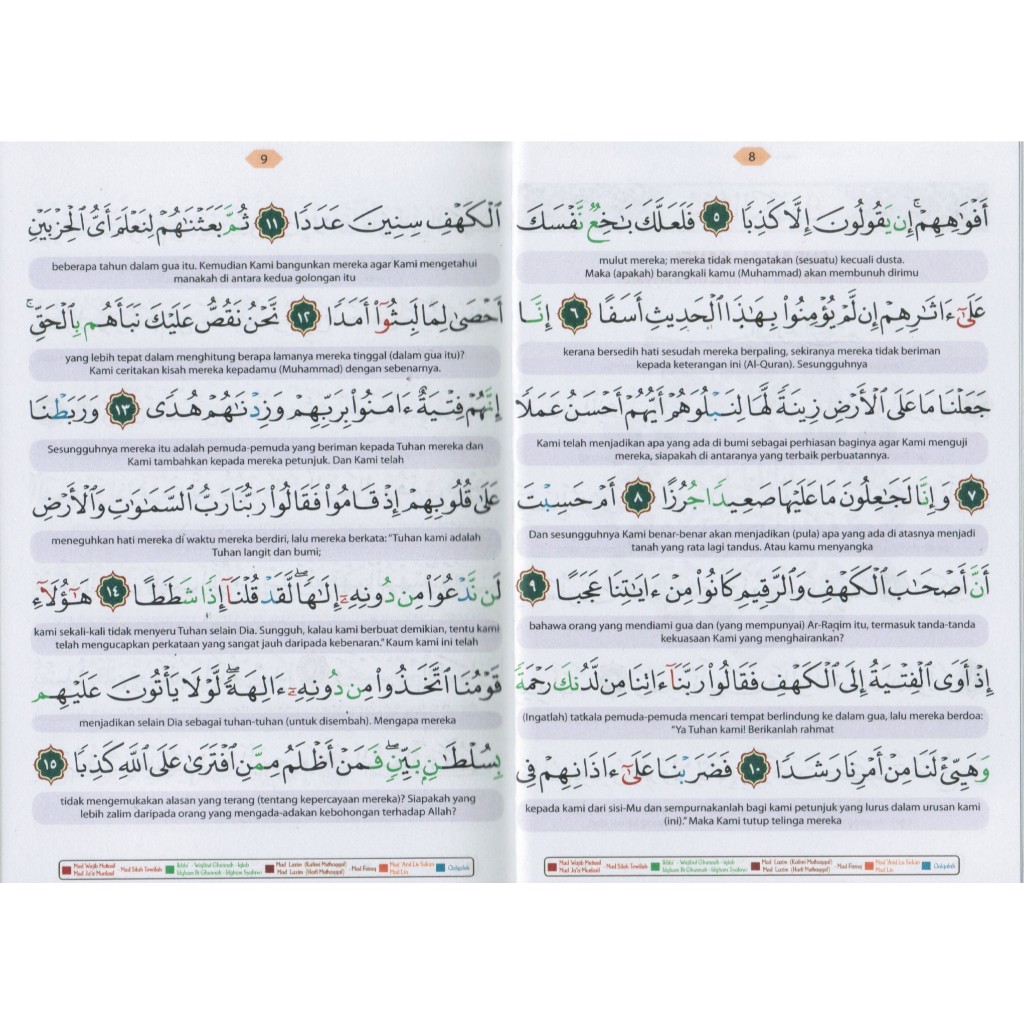 8
أَفْوَٰهِهِمْ ۚ إِن يَقُولُونَ إِلَّا كَذِبًا ٥ فَلَعَلَّكَ بَـٰخِعٌ نَّفْسَكَ
mulut mereka; mereka tidak mengatakan (sesuatu) kecuali dusta.
Maka (apakah) barangkali kamu (Muhammad) akan membunuh dirimu
عَلَىٰٓ ءَاثَـٰرِهِمْ إِن لَّمْ يُؤْمِنُوا۟ بِهَـٰذَا ٱلْحَدِيثِ أَسَفًا ٦ إِنَّا
kerana bersedih hati sesudah mereka berpaling, sekiranya mereka tidak beriman
kepada keterangan ini (Al-Quran). Sesungguhnya
جَعَلْنَا مَا عَلَى ٱلْأَرْضِ زِينَةً لَّهَا لِنَبْلُوَهُمْ أَيُّهُمْ أَحْسَنُ عَمَلًا
Kami telah menjadikan apa yang ada di bumi sebagai perhiasan baginya agar Kami menguji
mereka, siapakah di antaranya yang terbaik perbuatannya.
٧ وَإِنَّا لَجَـٰعِلُونَ مَا عَلَيْهَا صَعِيدًا جُرُزًا ٨ أَمْ حَسِبْتَ
Dan sesungguhnya Kami benar-benar akan menjadikan (pula) apa yang ada di atasnya menjadi
tanah yang rata lagi tandus. Atau kamu menyangka
أَنَّ أَصْحَـٰبَ ٱلْكَهْفِ وَٱلرَّقِيمِ كَانُوا۟ مِنْ ءَايَـٰتِنَا عَجَبًا ٩
bahawa orang yang mendiami gua dan (yang mempunyai) Ar-Raqim itu, termasuk tanda-tanda
kekuasaan Kami yang menghairankan?
إِذْ أَوَى ٱلْفِتْيَةُ إِلَى ٱلْكَهْفِ فَقَالُوا۟ رَبَّنَآ ءَاتِنَا مِن لَّدُنكَ رَحْمَةً
(Ingatlah) tatkala pemuda-pemuda mencari tempat berlindung ke dalam gua, lalu mereka berdoa:
"Ya Tuhan kami! Berikanlah rahmat
وَهَيِّئْ لَنَا مِنْ أَمْرِنَا رَشَدًا ١٠ فَضَرَبْنَا عَلَىٰٓ ءَاذَانِهِمْ فِى
kepada kami dari sisi-Mu dan sempurnakanlah bagi kami petunjuk yang lurus dalam urusan kami
(ini)." Maka Kami tutup telinga mereka
Mad Wajib Muttasil Mad Silah Tawilah Ikhfa' - Wajibul Ghunnah - Iqlab Mad Lazim (Kalimi Muthaqqal) Mad Farq Mad 'Arid Lis Sukun Qalqalah
Mad Ja'iz Munfasil Idgham Bi Ghunnah - Idgham Syafawi Mad Lazim (Harfi Muthaqqal) Mad Lin
9
ٱلْكَهْفِ سِنِينَ عَدَدًا ١١ ثُمَّ بَعَثْنَـٰهُمْ لِنَعْلَمَ أَىُّ ٱلْحِزْبَيْنِ
beberapa tahun dalam gua itu. Kemudian Kami bangunkan mereka agar Kami mengetahui
manakah di antara kedua golongan itu
أَحْصَىٰ لِمَا لَبِثُوٓا۟ أَمَدًا ١٢ نَّحْنُ نَقُصُّ عَلَيْكَ نَبَأَهُم بِٱلْحَقِّ ۚ
yang lebih tepat dalam menghitung berapa lamanya mereka tinggal (dalam gua itu)?
Kami ceritakan kisah mereka kepadamu (Muhammad) dengan sebenarnya.
إِنَّهُمْ فِتْيَةٌ ءَامَنُوا۟ بِرَبِّهِمْ وَزِدْنَـٰهُمْ هُدًى ١٣ وَرَبَطْنَا
Sesungguhnya mereka itu adalah pemuda-pemuda yang beriman kepada Tuhan mereka dan
Kami tambahkan kepada mereka petunjuk. Dan Kami telah
عَلَىٰ قُلُوبِهِمْ إِذْ قَامُوا۟ فَقَالُوا۟ رَبُّنَا رَبُّ ٱلسَّمَـٰوَٰتِ وَٱلْأَرْضِ
meneguhkan hati mereka di waktu mereka berdiri, lalu mereka berkata: "Tuhan kami adalah
Tuhan langit dan bumi;
لَن نَّدْعُوَا۟ مِن دُونِهِۦٓ إِلَـٰهًا ۖ لَّقَدْ قُلْنَآ إِذًا شَطَطًا ١٤ هَـٰٓؤُلَآءِ
kami sekali-kali tidak menyeru Tuhan selain Dia. Sungguh, kalau kami berbuat demikian, tentu kami
telah mengucapkan perkataan yang sangat jauh daripada kebenaran." Kaum kami ini telah
قَوْمُنَا ٱتَّخَذُوا۟ مِن دُونِهِۦٓ ءَالِهَةً ۖ لَّوْلَا يَأْتُونَ عَلَيْهِم
menjadikan selain Dia sebagai tuhan-tuhan (untuk disembah). Mengapa mereka
بِسُلْطَـٰنٍۭ بَيِّنٍ ۖ فَمَنْ أَظْلَمُ مِمَّنِ ٱفْتَرَىٰ عَلَى ٱللَّهِ كَذِبًا ١٥
tidak mengemukakan alasan yang terang (tentang kepercayaan mereka)? Siapakah yang
lebih zalim daripada orang yang mengada-adakan kebohongan terhadap Allah?
Mad Wajib Muttasil Mad Silah Tawilah Ikhfa' - Wajibul Ghunnah - Iqlab Mad Lazim (Kalimi Muthaqqal) Mad Farq Mad 'Arid Lis Sukun Qalqalah
Mad Ja'iz Munfasil Idgham Bi Ghunnah - Idgham Syafawi Mad Lazim (Harfi Muthaqqal) Mad Lin